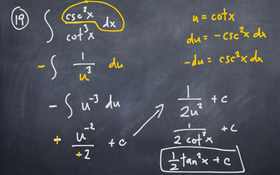 19 ∫ csc²x / cot³x dx
u = cotx
du = -csc²x dx
-du = csc²x dx
- ∫ 1/u³ du
- ∫ u⁻³ du
+ u⁻² / +2 + c
1 / 2u² + c
1 / 2cot²x + c
½ tan²x + c